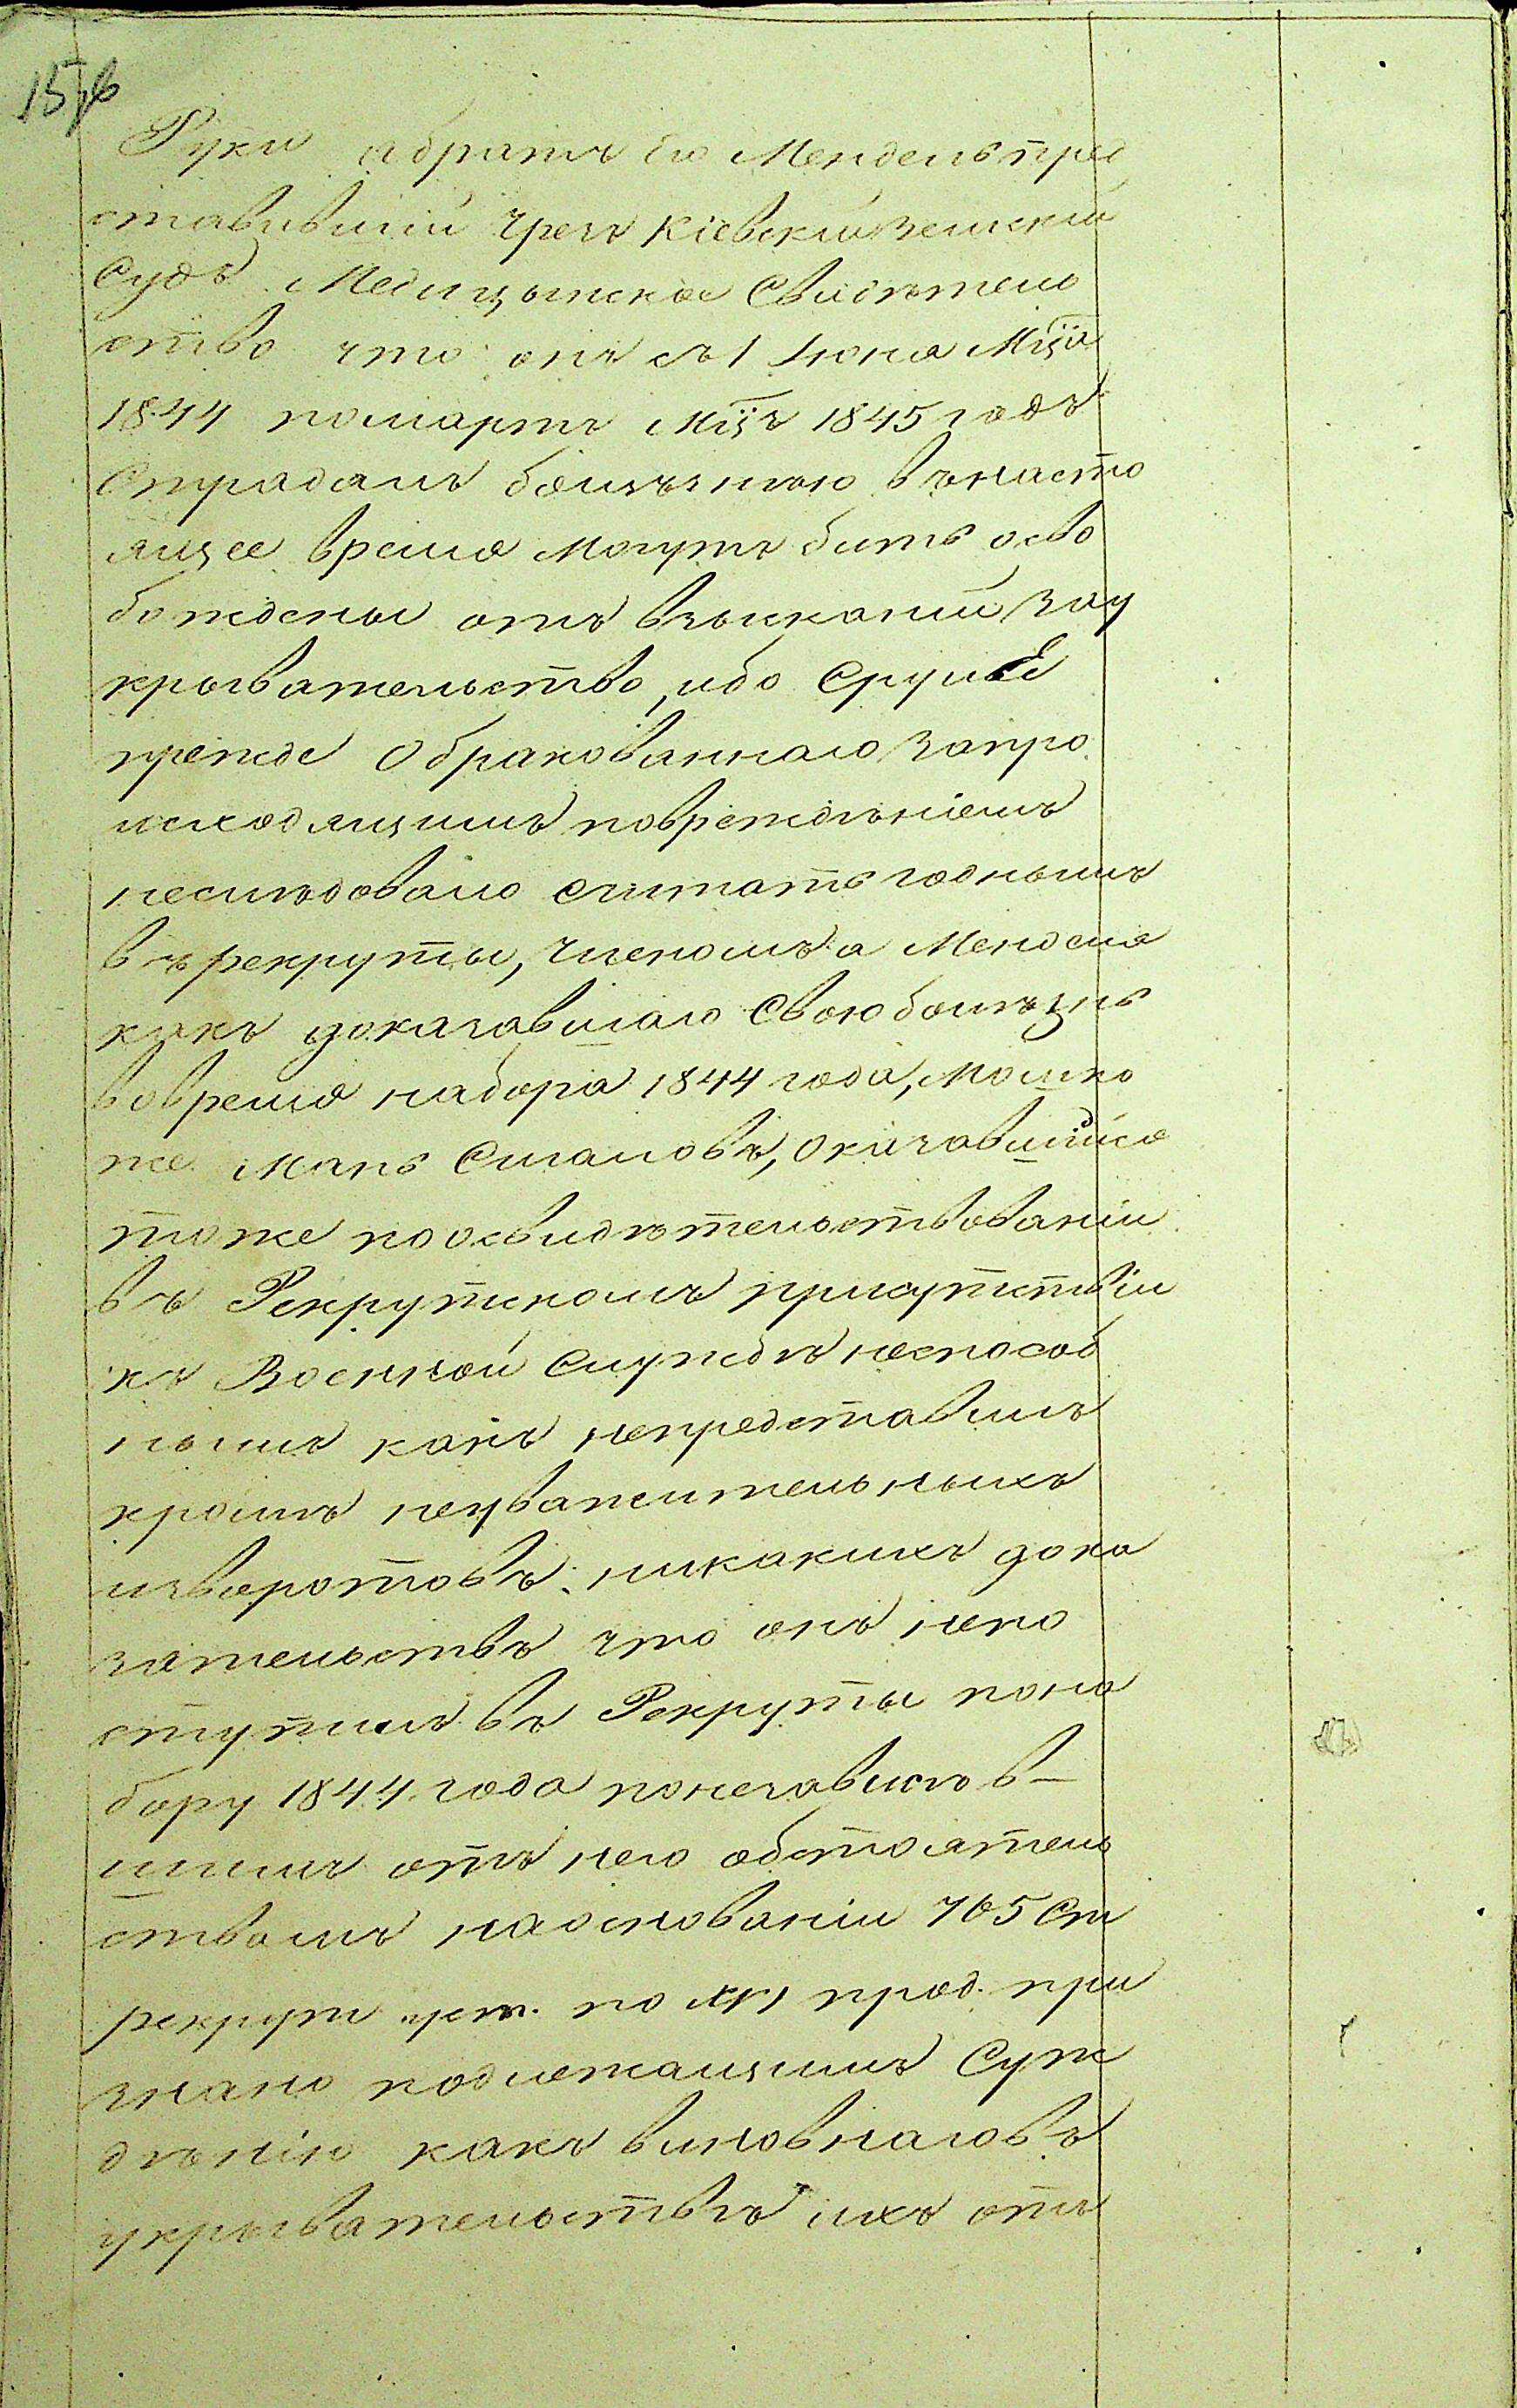 Руки абратъ Его Мендель пред
ставившій чрезъ Кіевскій Земскій
Судъ Медицынское Свидѣтель
ство что онъ съ 1 Іюня Мца
1844 помартъ Мцъ 1845 годъ
Страдалъ болѣзнѣю внасто
ящее время могутъ бить осво
бождены отъ взысканій зау
крывательство, ибо Сруля
прежде Обракованнаго запро
исходящимъ поврежденіемъ
неслѣдовало считать годнымъ
въ рекруты, Членомъ а Менделя
какъ доказавшаго Свою болѣзнь
вовремя набора 1844 года, Мошко
же Мань Смаловъ, Оказавшійся
тоже по освидѣтельствованіи
въ Рекрутскомъ присутствіи
къ Военной Службѣ неспособ
нымъ какъ непредставилъ
кромѣ неуважительныхъ
изворотовъ никакихъ дока
зательствъ что онъ непо
ступилъ въ Рекруты пона
бору 1844 года понезависѣв-
шимъ отъ него обстоятель
ствамъ наоснованіи 705 Ст
рекрут уст. по XVI прод. при
знано подлежащимъ Суж
дѣнію какъ виновнаговъ
укрывательствѣ ихъ отъ